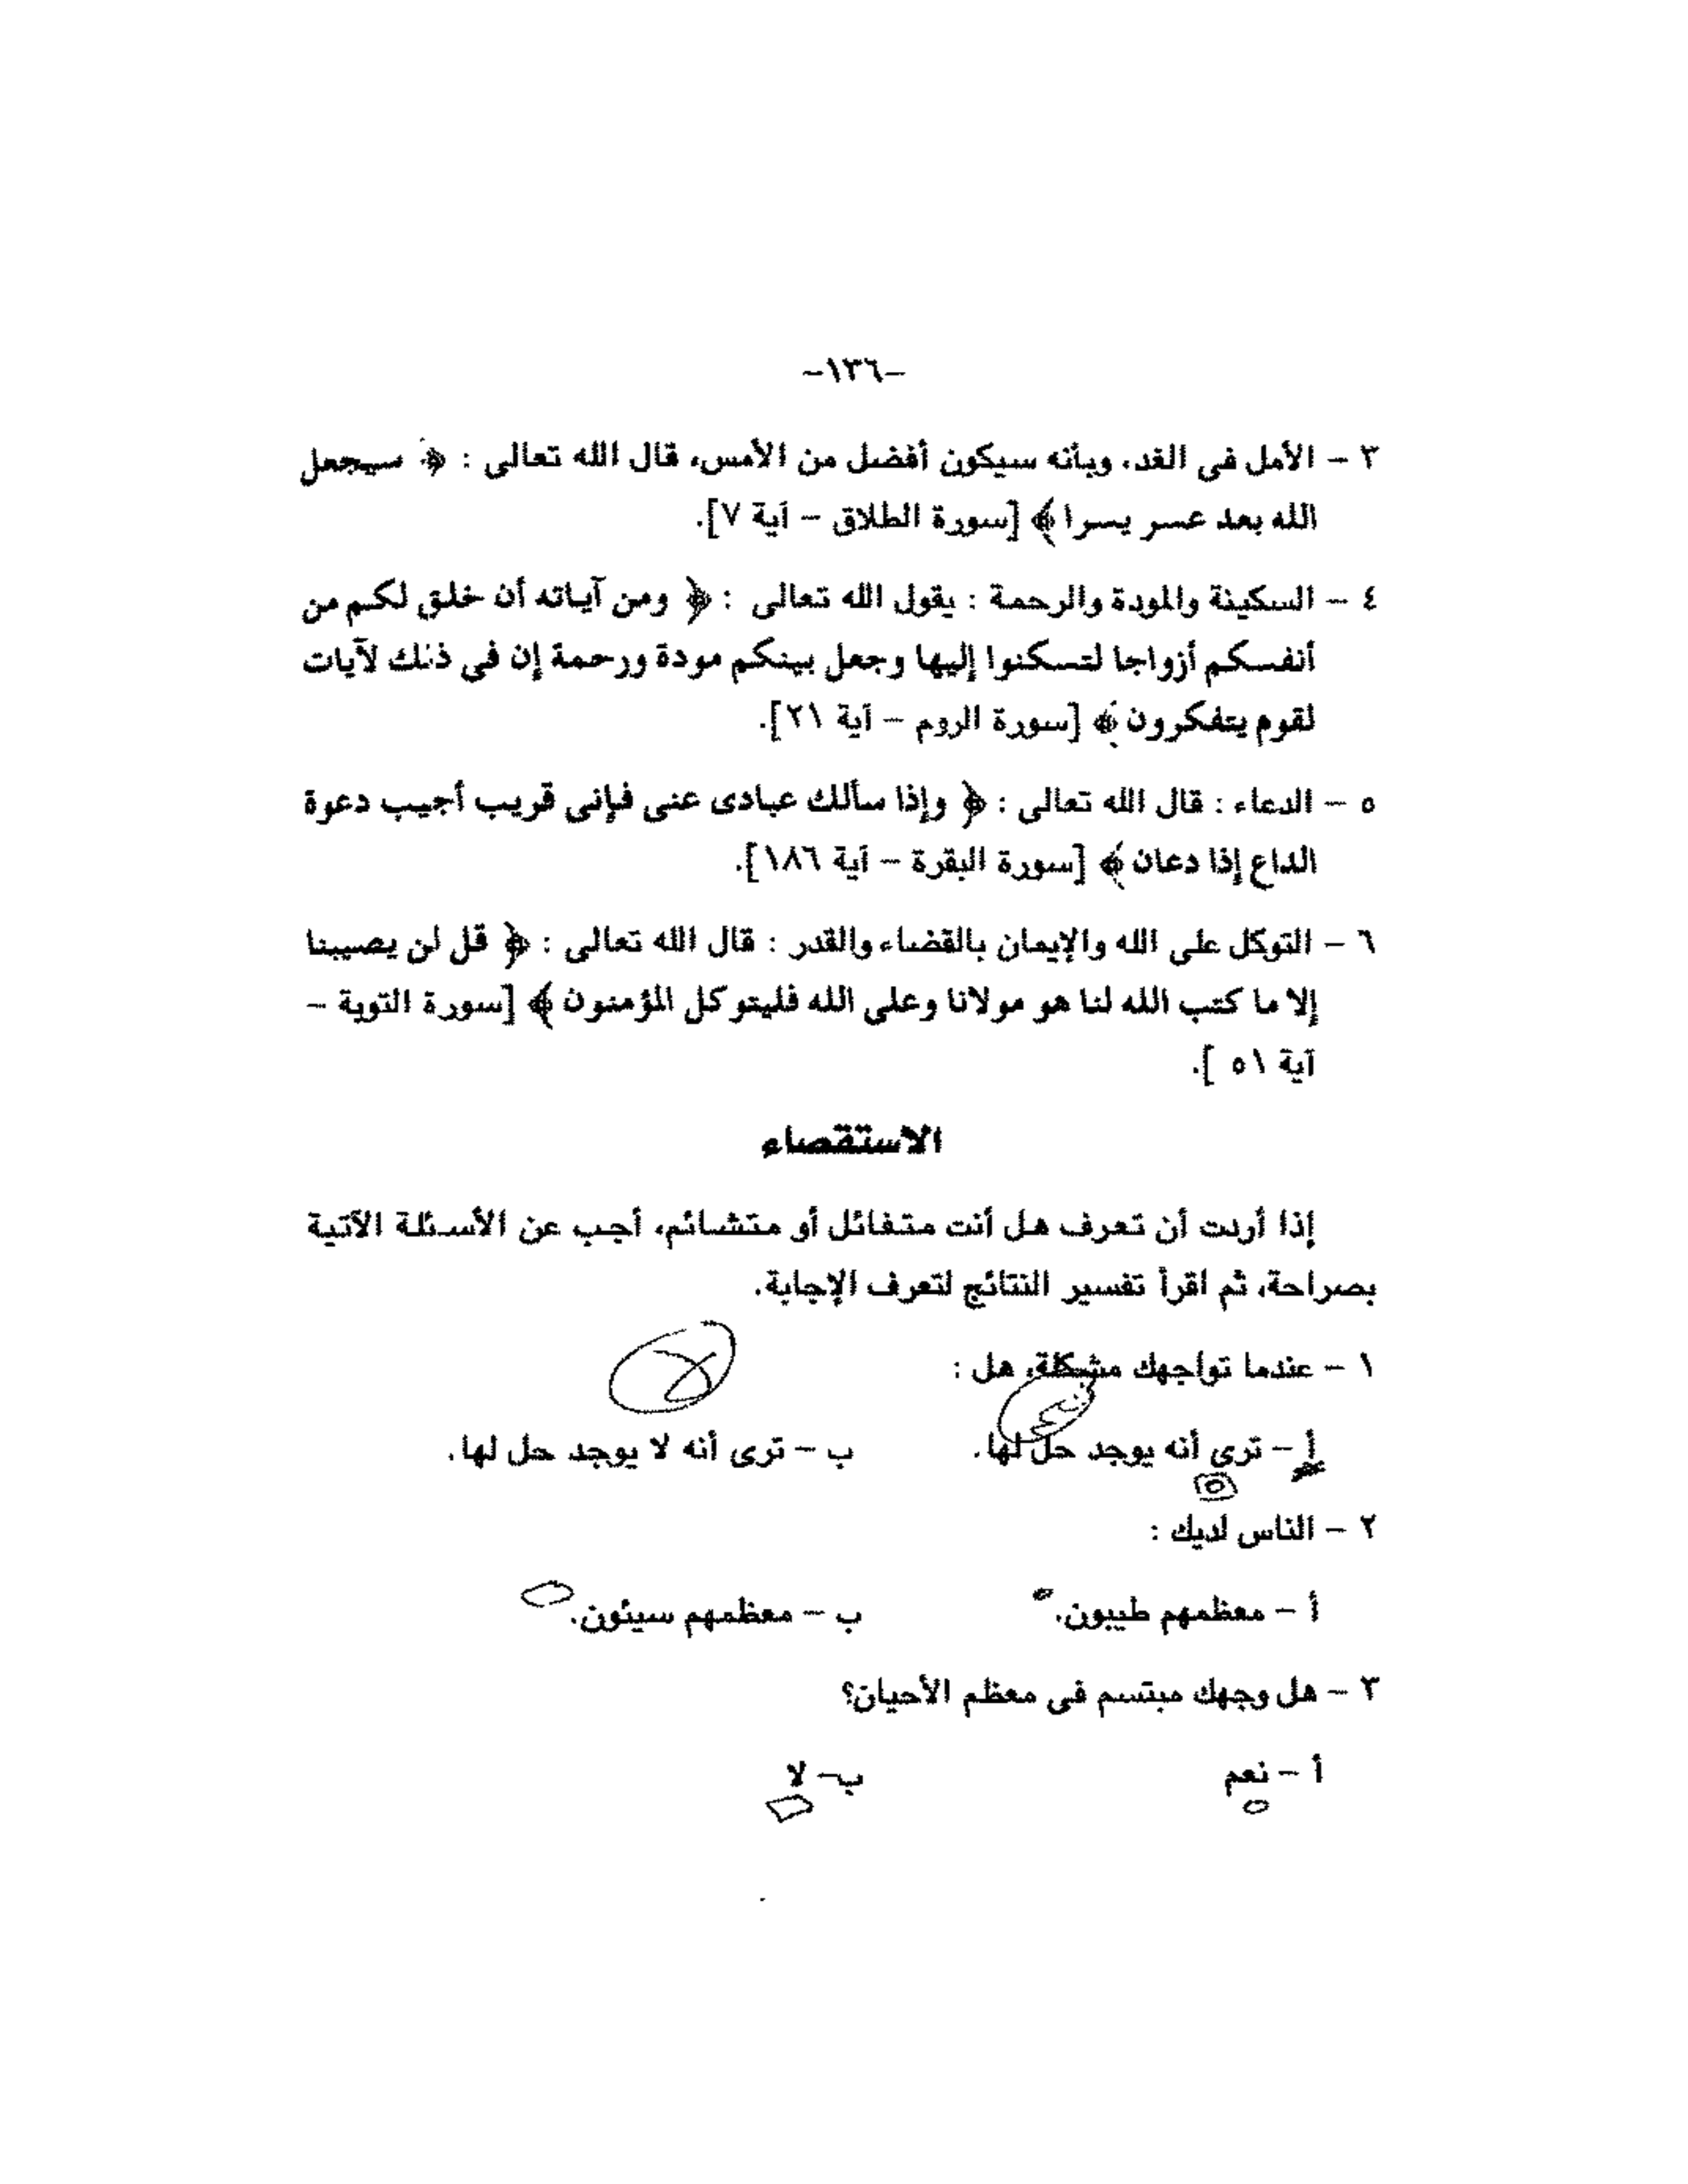 -١٣٦-
٣ - الأمل فى الغد، وبأنه سيكون أفضل من الأمس، قال الله تعالى : ﴿ سيجعل
الله بعد عسر يسرا ﴾ [سورة الطلاق - آية ٧].
٤ - السكينة والمودة والرحمة : يقول الله تعالى : ﴿ ومن آياته أن خلق لكم من
أنفسكم أزواجا لتسكنوا إليها وجعل بينكم مودة ورحمة إن فى ذلك لآيات
لقوم يتفكرون ﴾ [سورة الروم - آية ٢١].
٥ - الدعاء : قال الله تعالى : ﴿ وإذا سألك عبادى عنى فإنى قريب أجيب دعوة
الداع إذا دعان ﴾ [سورة البقرة - آية ١٨٦].
٦ - التوكل على الله والإيمان بالقضاء والقدر : قال الله تعالى : ﴿ قل لن يصيبنا
إلا ما كتب الله لنا هو مولانا وعلى الله فليتوكل المؤمنون ﴾ [سورة التوبة -
آية ٥١ ].
الاستقصاء
إذا أردت أن تعرف هل أنت متفائل أو متشائم، أجب عن الأسئلة الآتية
بصراحة، ثم اقرأ تفسير النتائج لتعرف الإجابة.
١ - عندما تواجهك مشكلة، هل :
لا
نعم
أ - ترى أنه يوجد حل لها. ب - ترى أنه لا يوجد حل لها.
٢ - الناس لديك :
أ - معظمهم طيبون. ب - معظمهم سيئون.
٣ - هل وجهك مبتسم فى معظم الأحيان؟
أ - نعم ب- لا